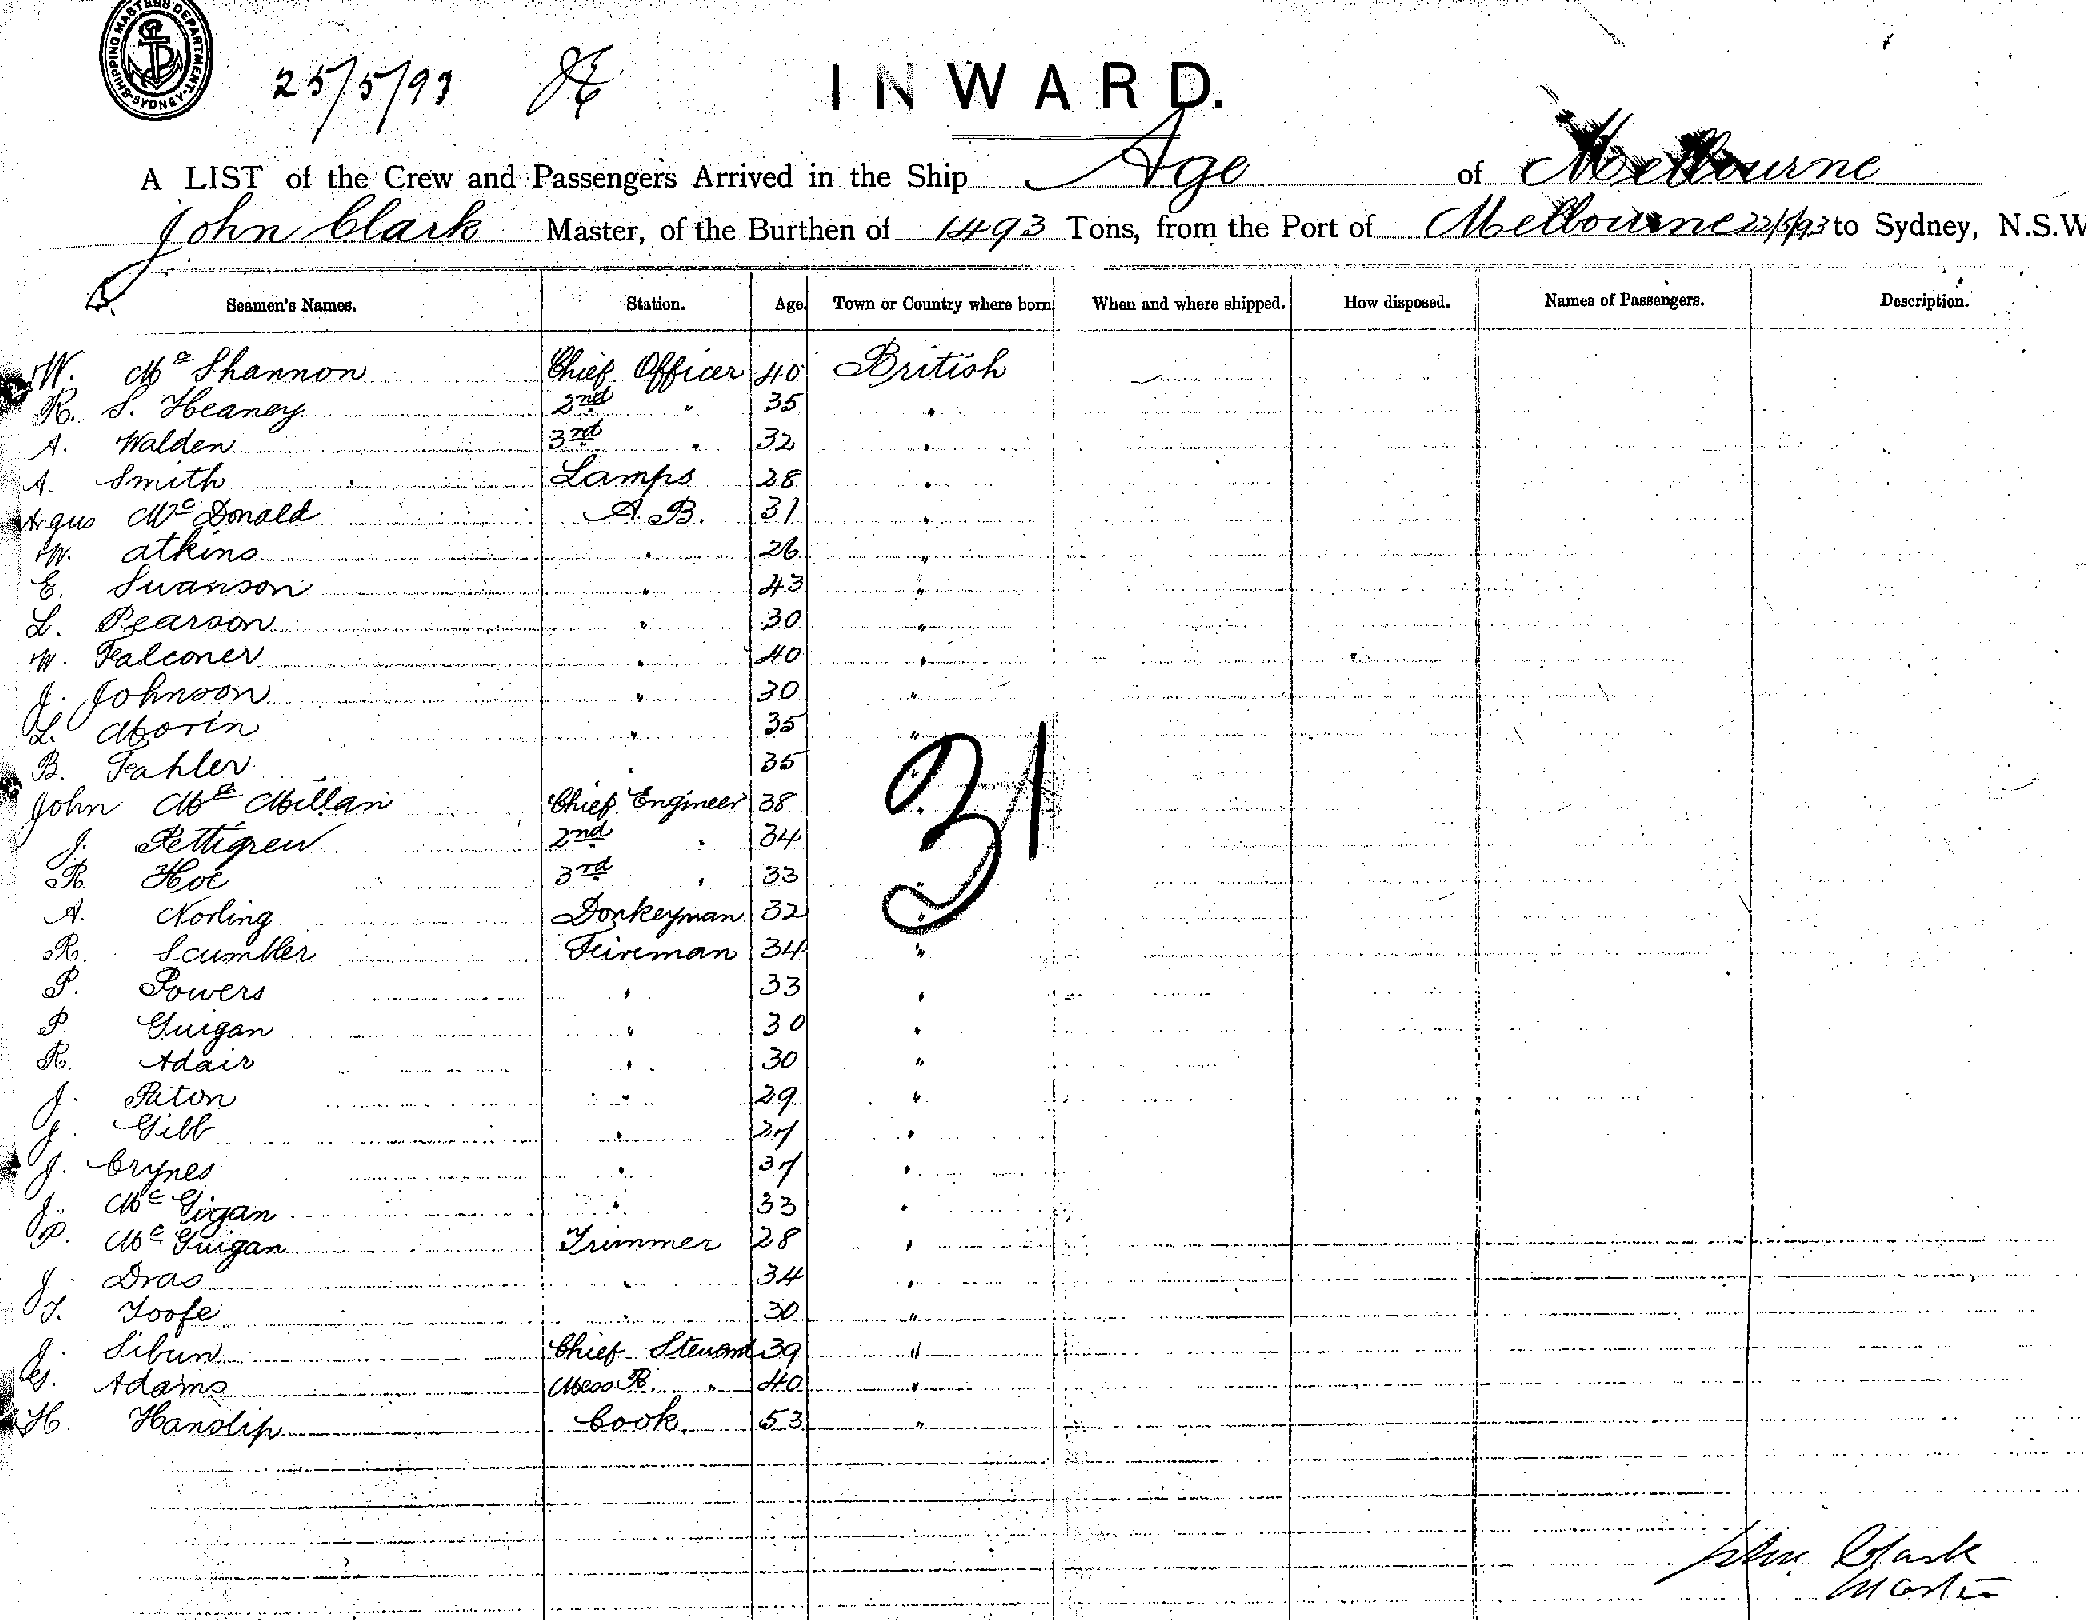 SHIPPING MASTERS DEPARTMENT SYDNEY
25/5/93
INWARD.
A LIST of the Crew and Passengers Arrived in the Ship Age of Melbourne
John Clark Master, of the Burthen of 1493 Tons, from the Port of Melbourne 22/5/93 to Sydney, N.S.W
Seamen's Names. Station. Age. Town or Country where born When and where shipped. How disposed. Names of Passengers. Description.
W. Mc Shannon Chief Officer 40 British
R. S. Heaney 2nd " 35 "
A. Walden 3rd " 32 "
A. Smith Lamps 28 "
Argus McDonald A.B. 31 "
W. Atkins " 26 "
E. Swanson " 43 "
L. Pearson " 30 "
W. Falconer " 40 "
J. Johnson " 30 "
L. Morin " 35 "
B. Fahler " 35
John McMillan Chief Engineer 38
J. Pettigrew 2nd " 34
R. Hoe 3rd " 33
31
A. Norling Donkeyman 32
R. Scumbler Feireman 34 "
P. Powers " 33 "
P. Guigan " 30 "
R. Adair " 30 "
J. Paton " 29 "
J. Gibb " 27 "
J. Crynes " 37 "
J. McGigan " 33 "
P. McGuigan Trimmer 28 "
J. Dras " 34 "
T. Toofe " 30 "
J. Sibun Chief Steward 39 "
G. Adams Mess R. " 40 "
H. Hanslip Cook 53 "
John Clark
Master